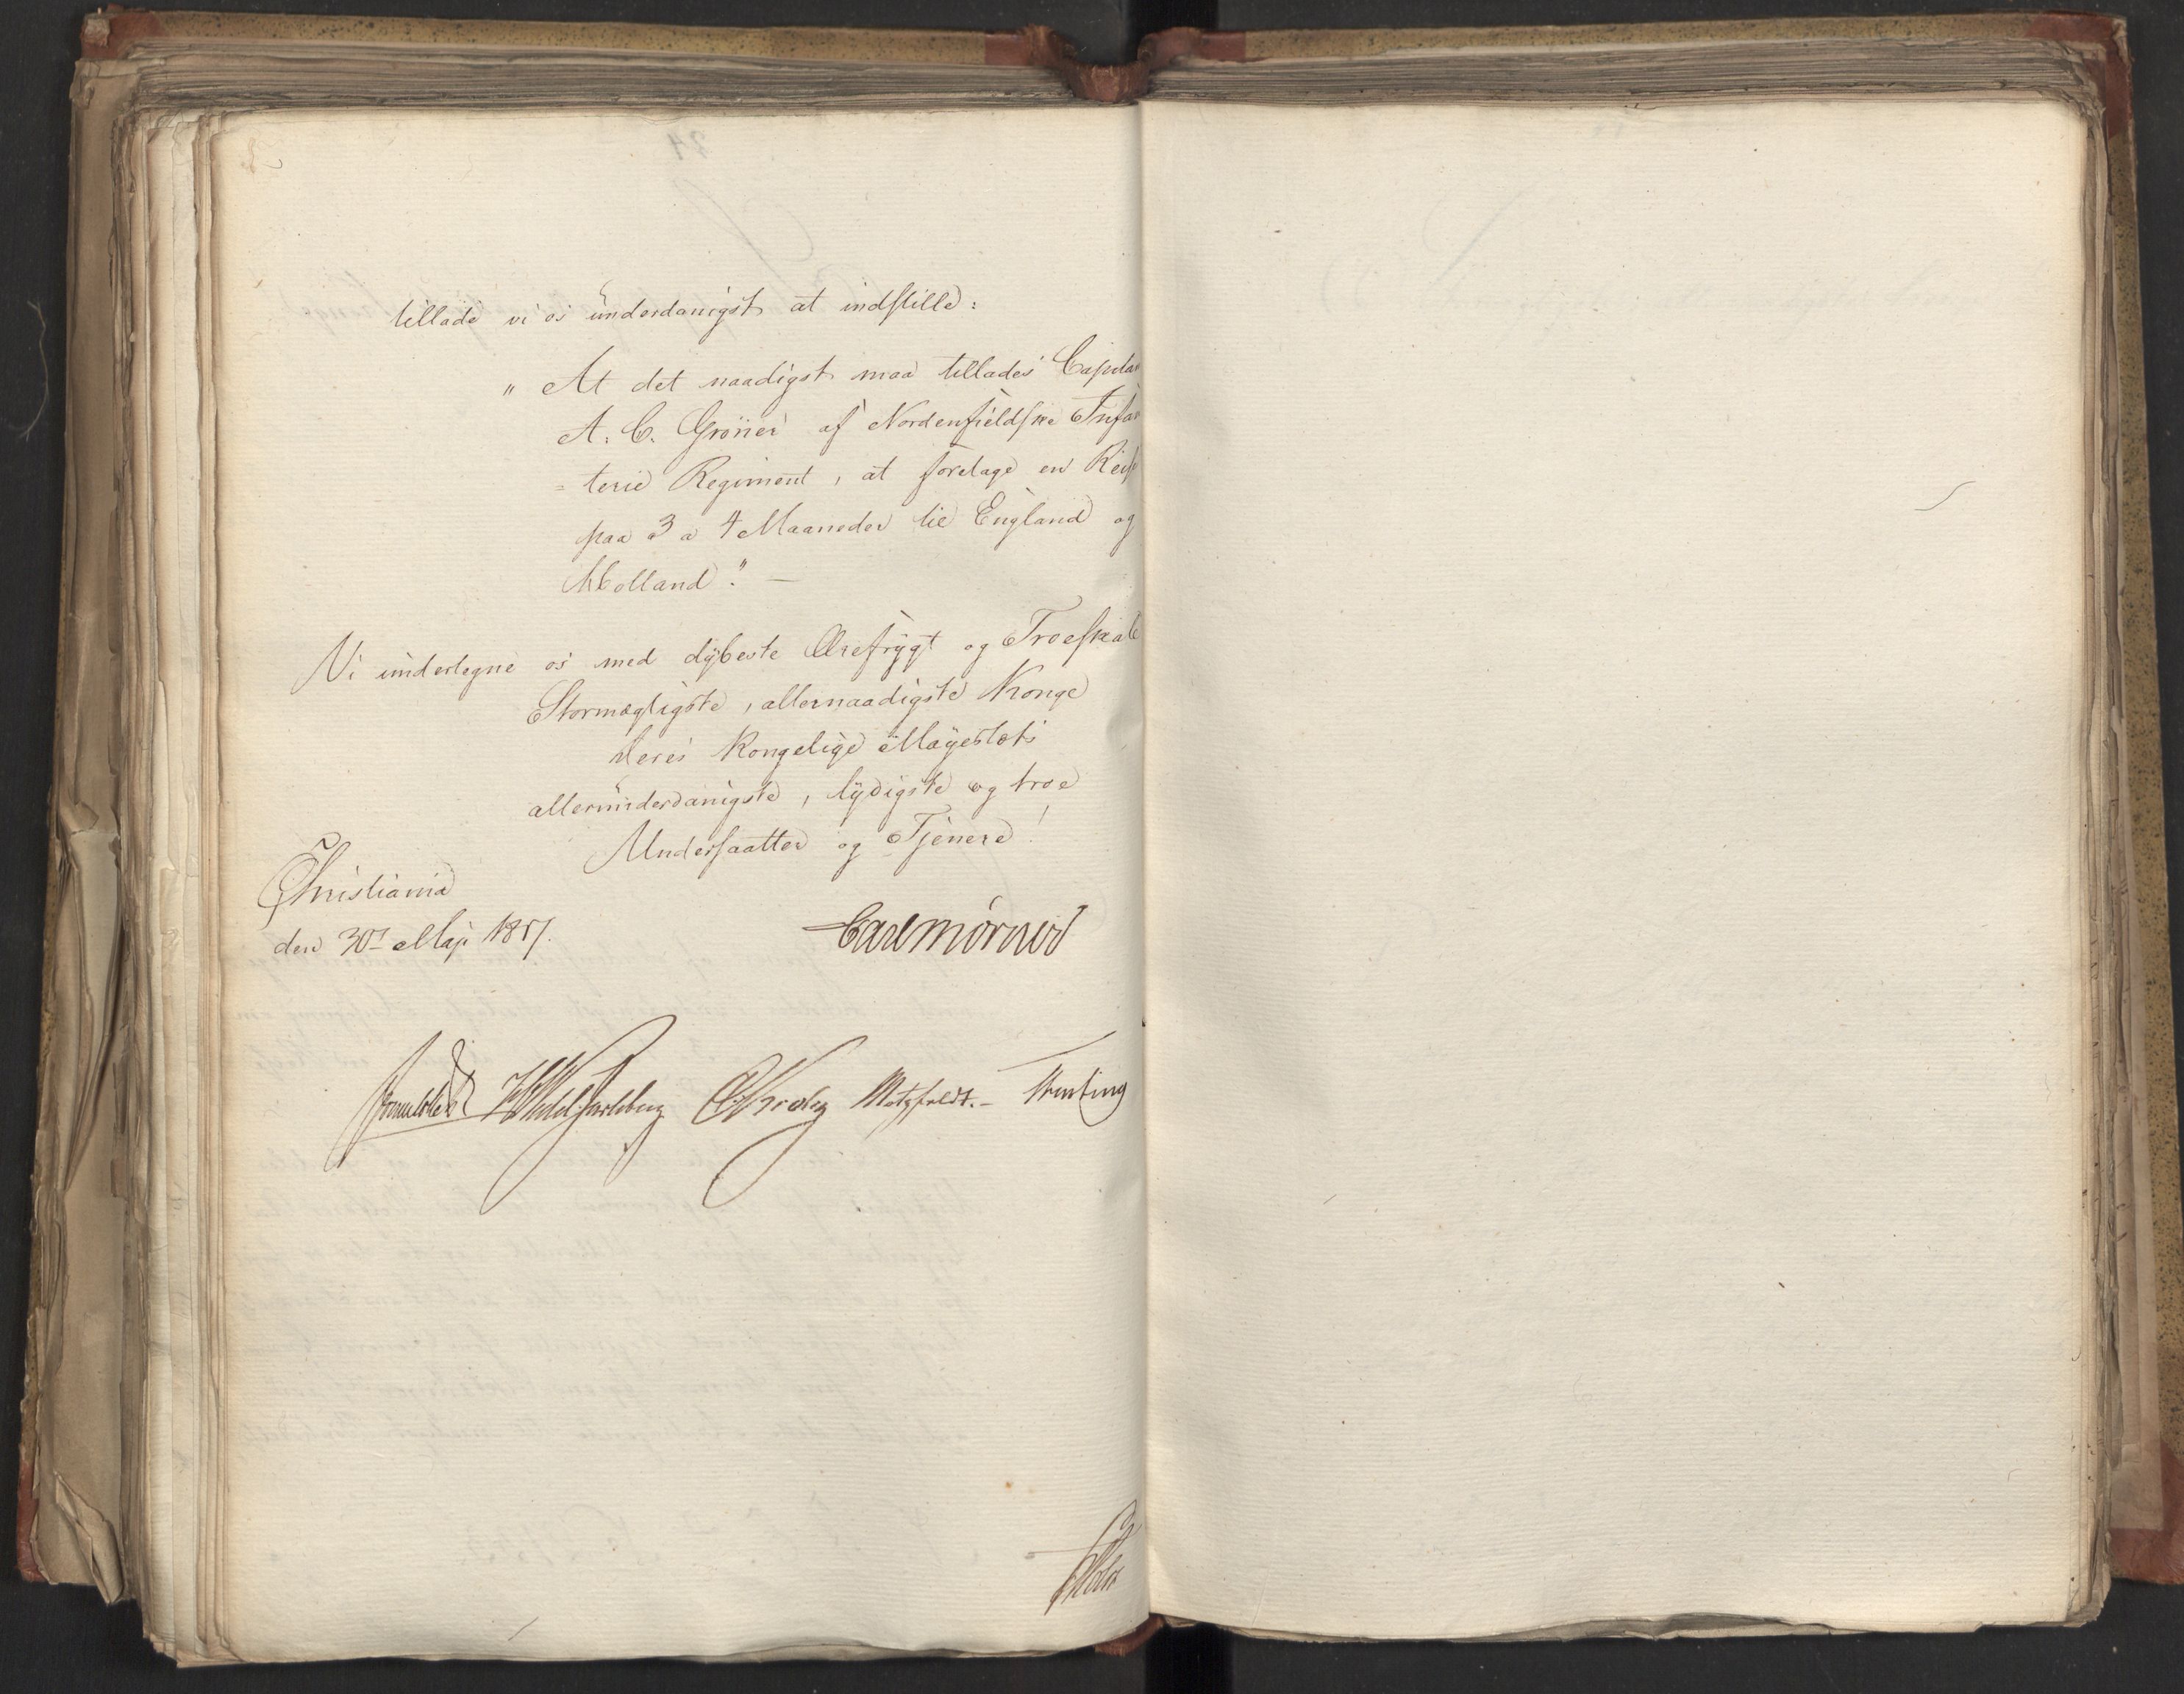 tillade vi os underdanigst at indstille:
„At det naadigst maa tillades Capitai
A. C. Grøner af Nordenfieldske Infan
=terie Regiment, at foretage en Reise
paa 3 a 4 Maaneder til England og
Holland." —
Vi undertegne os med dybeste Ærefrygt og Troeskab
Stormægtigste, allernaadigste Konge
Deres Kongelige Mayestæts
allerunderdanigste, lydigste og troe
Undersaatter og Tjenere!
Christiania
den 30te Maji 1817.
Carl Mörner
Sommerhielm HWedelJarlsberg CKrohg Motzfeldt.- 
Holst